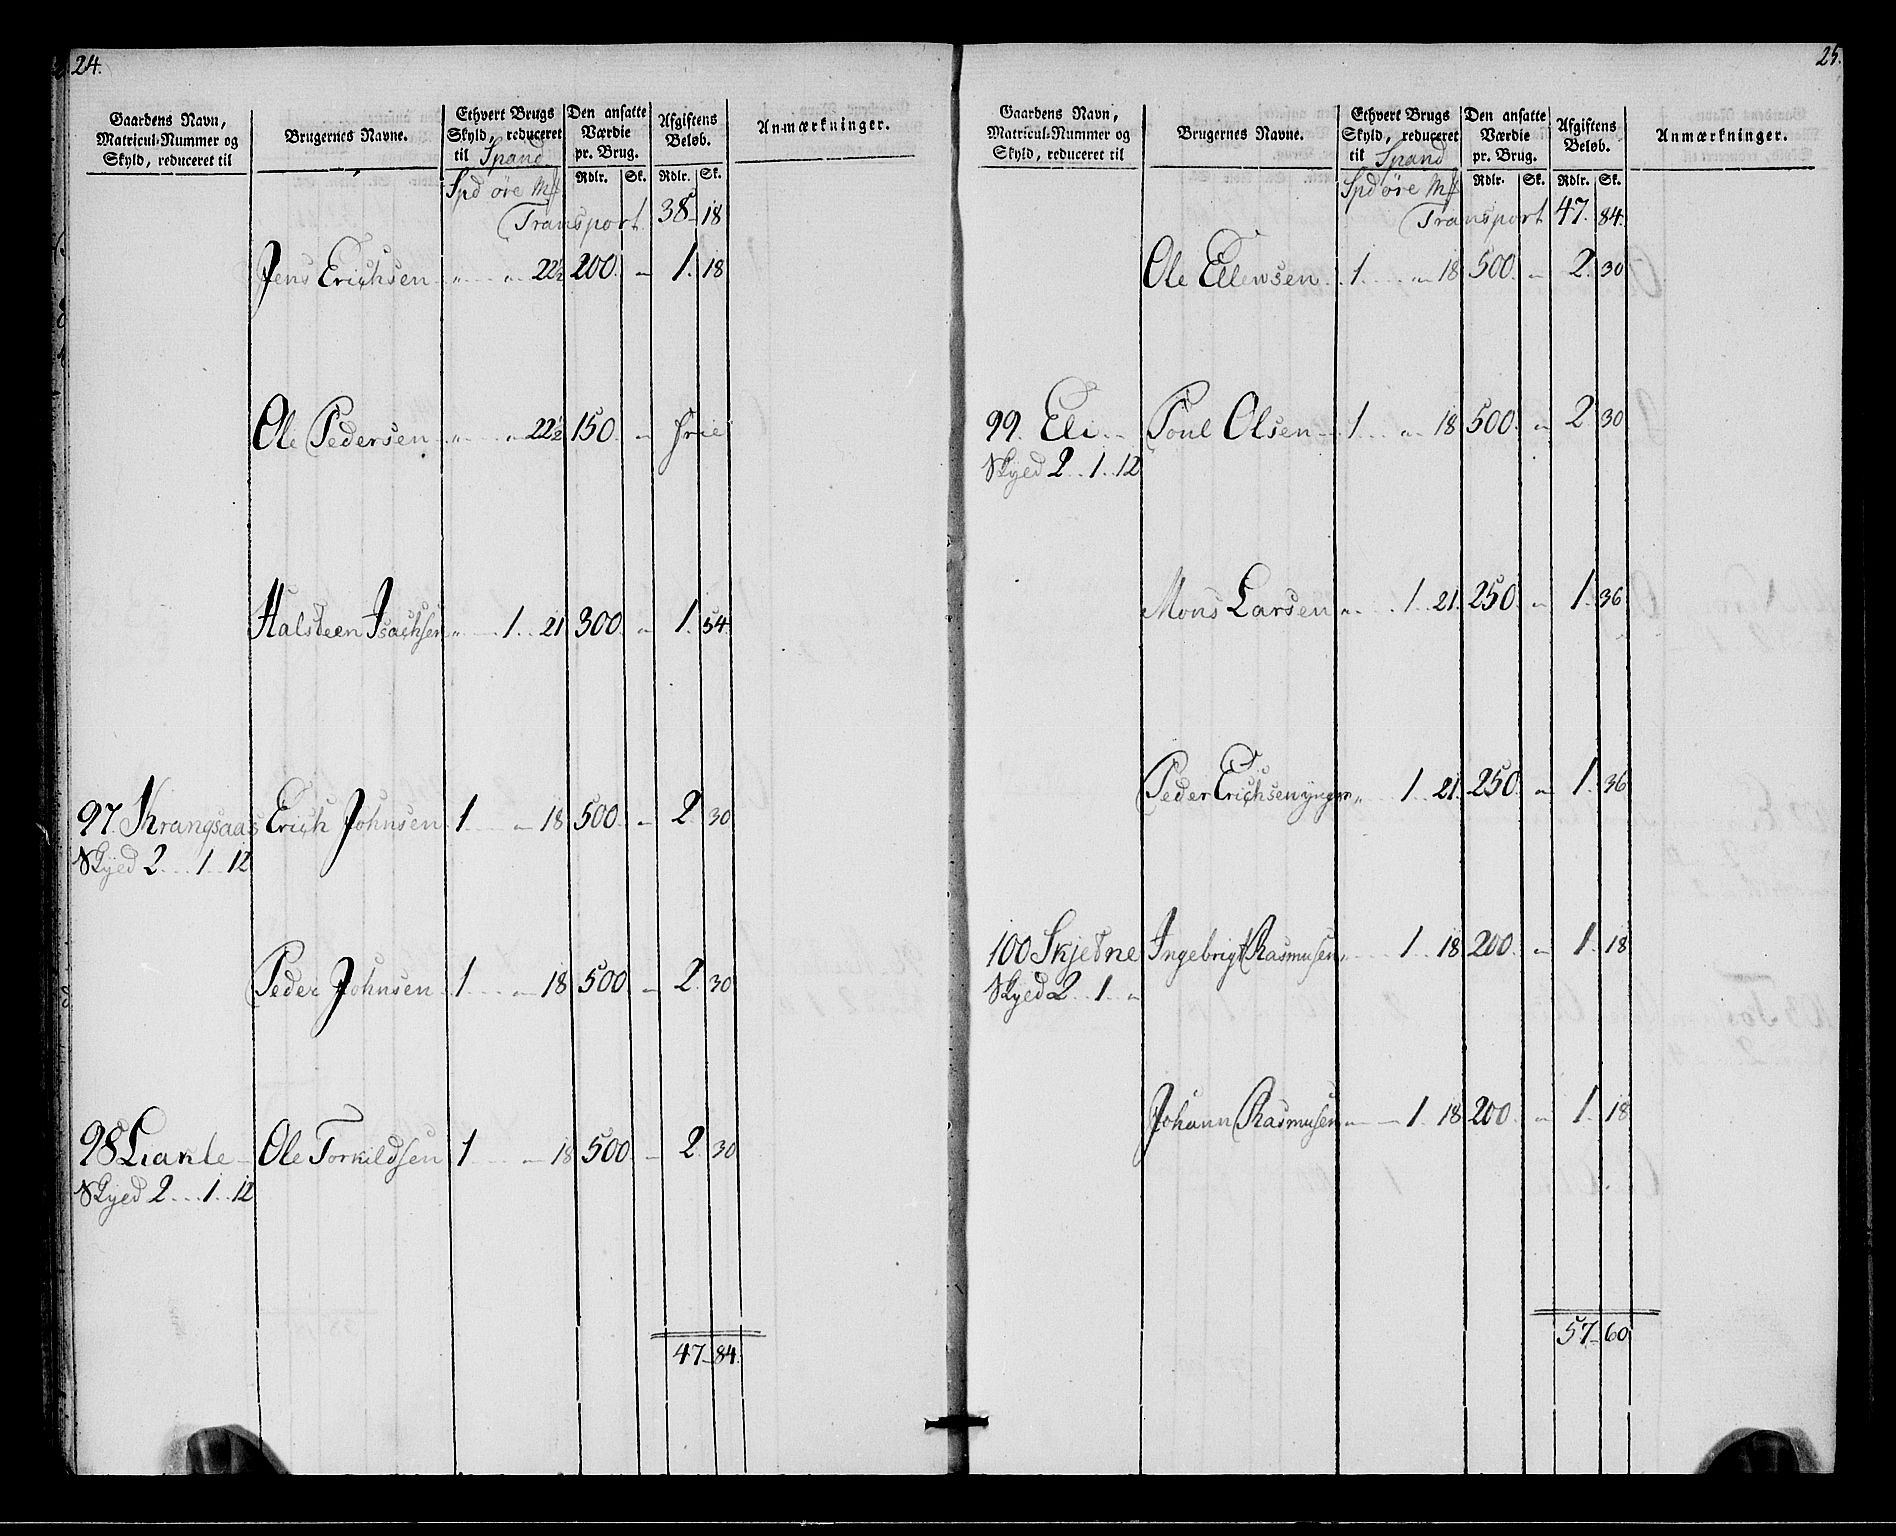 24.
Gaardens Navn, Matricul-Nummer og Skyld, reduceret til | Brugernes Navne. | Ethvert Brugs Skyld, reduceret til Spand | Den ansatte Værdie pr. Brug. | Afgiftens Beløb. | Anmærkninger.
Spd öre Mk | Rdlr. | Sk. | Rdlr. | Sk.
Transport 38 18
Jens Erichsen „ „ 22½ 200. „ 1. 18
Ole Pedersen „ „ 22½ 150. „ frie
Halsteen Isachsen „ 1. 21 300. „ 1. 54
97. Krangsaas Erich Johnsen 1 „ 18 500. „ 2. 30
Skyld 2 . . 1 . . 12
Peder Johnsen 1 „ 18 500. „ 2. 30
98 Liakle Ole Torkildsen 1 „ 18 500. „ 2. 30
Skyld 2 . . 1 . . 12
47 84.
25.
Gaardens Navn, Matricul-Nummer og Skyld, reduceret til | Brugernes Navne. | Ethvert Brugs Skyld, reduceret til Spand | Den ansatte Værdie pr. Brug. | Afgiftens Beløb. | Anmærkninger.
Spd öre Mk | Rdlr. | Sk. | Rdlr. | Sk.
Transport 47. 84.
Ole Ellewsen 1 „ 18 500. „ 2. 30
99. Eli Poul Olsen 1 „ 18 500. „ 2 30
Skyld 2 . . 1 . . 12
Mons Larsen „ 1. 21. 250. „ 1. 36
Peder Erichsen yngr „ 1. 21. 250. „ 1. 36
100 Skjetne Ingebrigt Rasmusen „ 1 18 200. „ 1. 18
Skyld 2 . . 1 . . „
Johann Rasmusen „ 1. 18 200. „ 1. 18
57 60